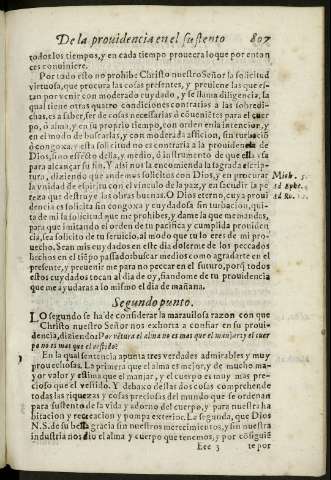 De la prouidencia en el sustento 807
todos los tiempos, y en cada tiempo prouecra lo que por enton
ces conuiniere.
Por todo esto no prohibe Christo nuestro Señor la solicitud
virtuosa, que procura las cosas presentes, y preuiene las que es-
tan por venir con moderado cuydado, y se llama diligencia, la
qual tiene otras quatro condiciones contrarias a las sobredi-
chas, es a saber, ser de cosas necessarias ò conuenietes para el cuer
po, ò alma, y en su proprio tiempo, con orden en la intencion, y
en el modo de buscarlas, y con moderada afficion, sin turbaciõ
ò congoxa, y esta solicitud no es contraria a la prouidencia de
Dios, sino effecto della, y medio, ò instrumento de que ella vsa
para alcançar su fin. Y assi nos la encomienda la sagrada escrip-
tura, diziendo que andemos solicitos con Dios, y en procurar
la vnidad de espiritu con el vinculo de la paz, y en sacudir la pe
reza que destruye las obras buenas. O Dios eterno, cuya proui
dencia es solicita sin congoxa y cuydadosa sin turbacion, qui-
ta de mi la solicitud que me prohibes, y dame la que me mandas,
para que imitando el orden de tu pacifica y cumplida prouiden
cia, sea solicito de tu seruicio, al modo que tu lo eres de mi pro-
uecho. Sean mis cuydados en este dia dolerme de los peccados
hechos en el tiẽpo passado: buscar medios como agradarte en el
presente, y preuenir me para no pecar en el futuro, porq̃ todos
estos cuydados tocan al dia de oy, fiandome de tu prouidencia
que me ayudaras a lo mismo el dia de mañana.
Mich. 6.
Ad Ephe.
Ad Ro. 12.
Segundo punto.
LO segundo se ha de considerar la marauillosa razon con que
Christo nuestro Señor nos exhorta a confiar en su proui-
dencia, diziendo: Por vẽtura el alma no es mas que el manjar? y el cuer
po no es mas que el vestido?
En la qual sentencia apunta tres verdades admirables y muy
prouechosas. La primera que el alma es mejor, y de mucho ma-
yor valor y estima que el manjar, y el cuerpo es muy mas pre-
cioso que el vestido. Y debaxo destas dos cosas comprehende
todas las riquezas y cosas preciosas del mundo que se ordenan
para sustento de la vida y adorno del cuerpo, y para nuestra ha
bitacion y recreacion y pompa exterior. La segunda, que Dios
N.S. de su bella gracia sin nuestros merecimientos, y sin nuestra
industria nos dio el alma y cuerpo que tenemos, y por cõsiguiẽ
Eee 3 te por